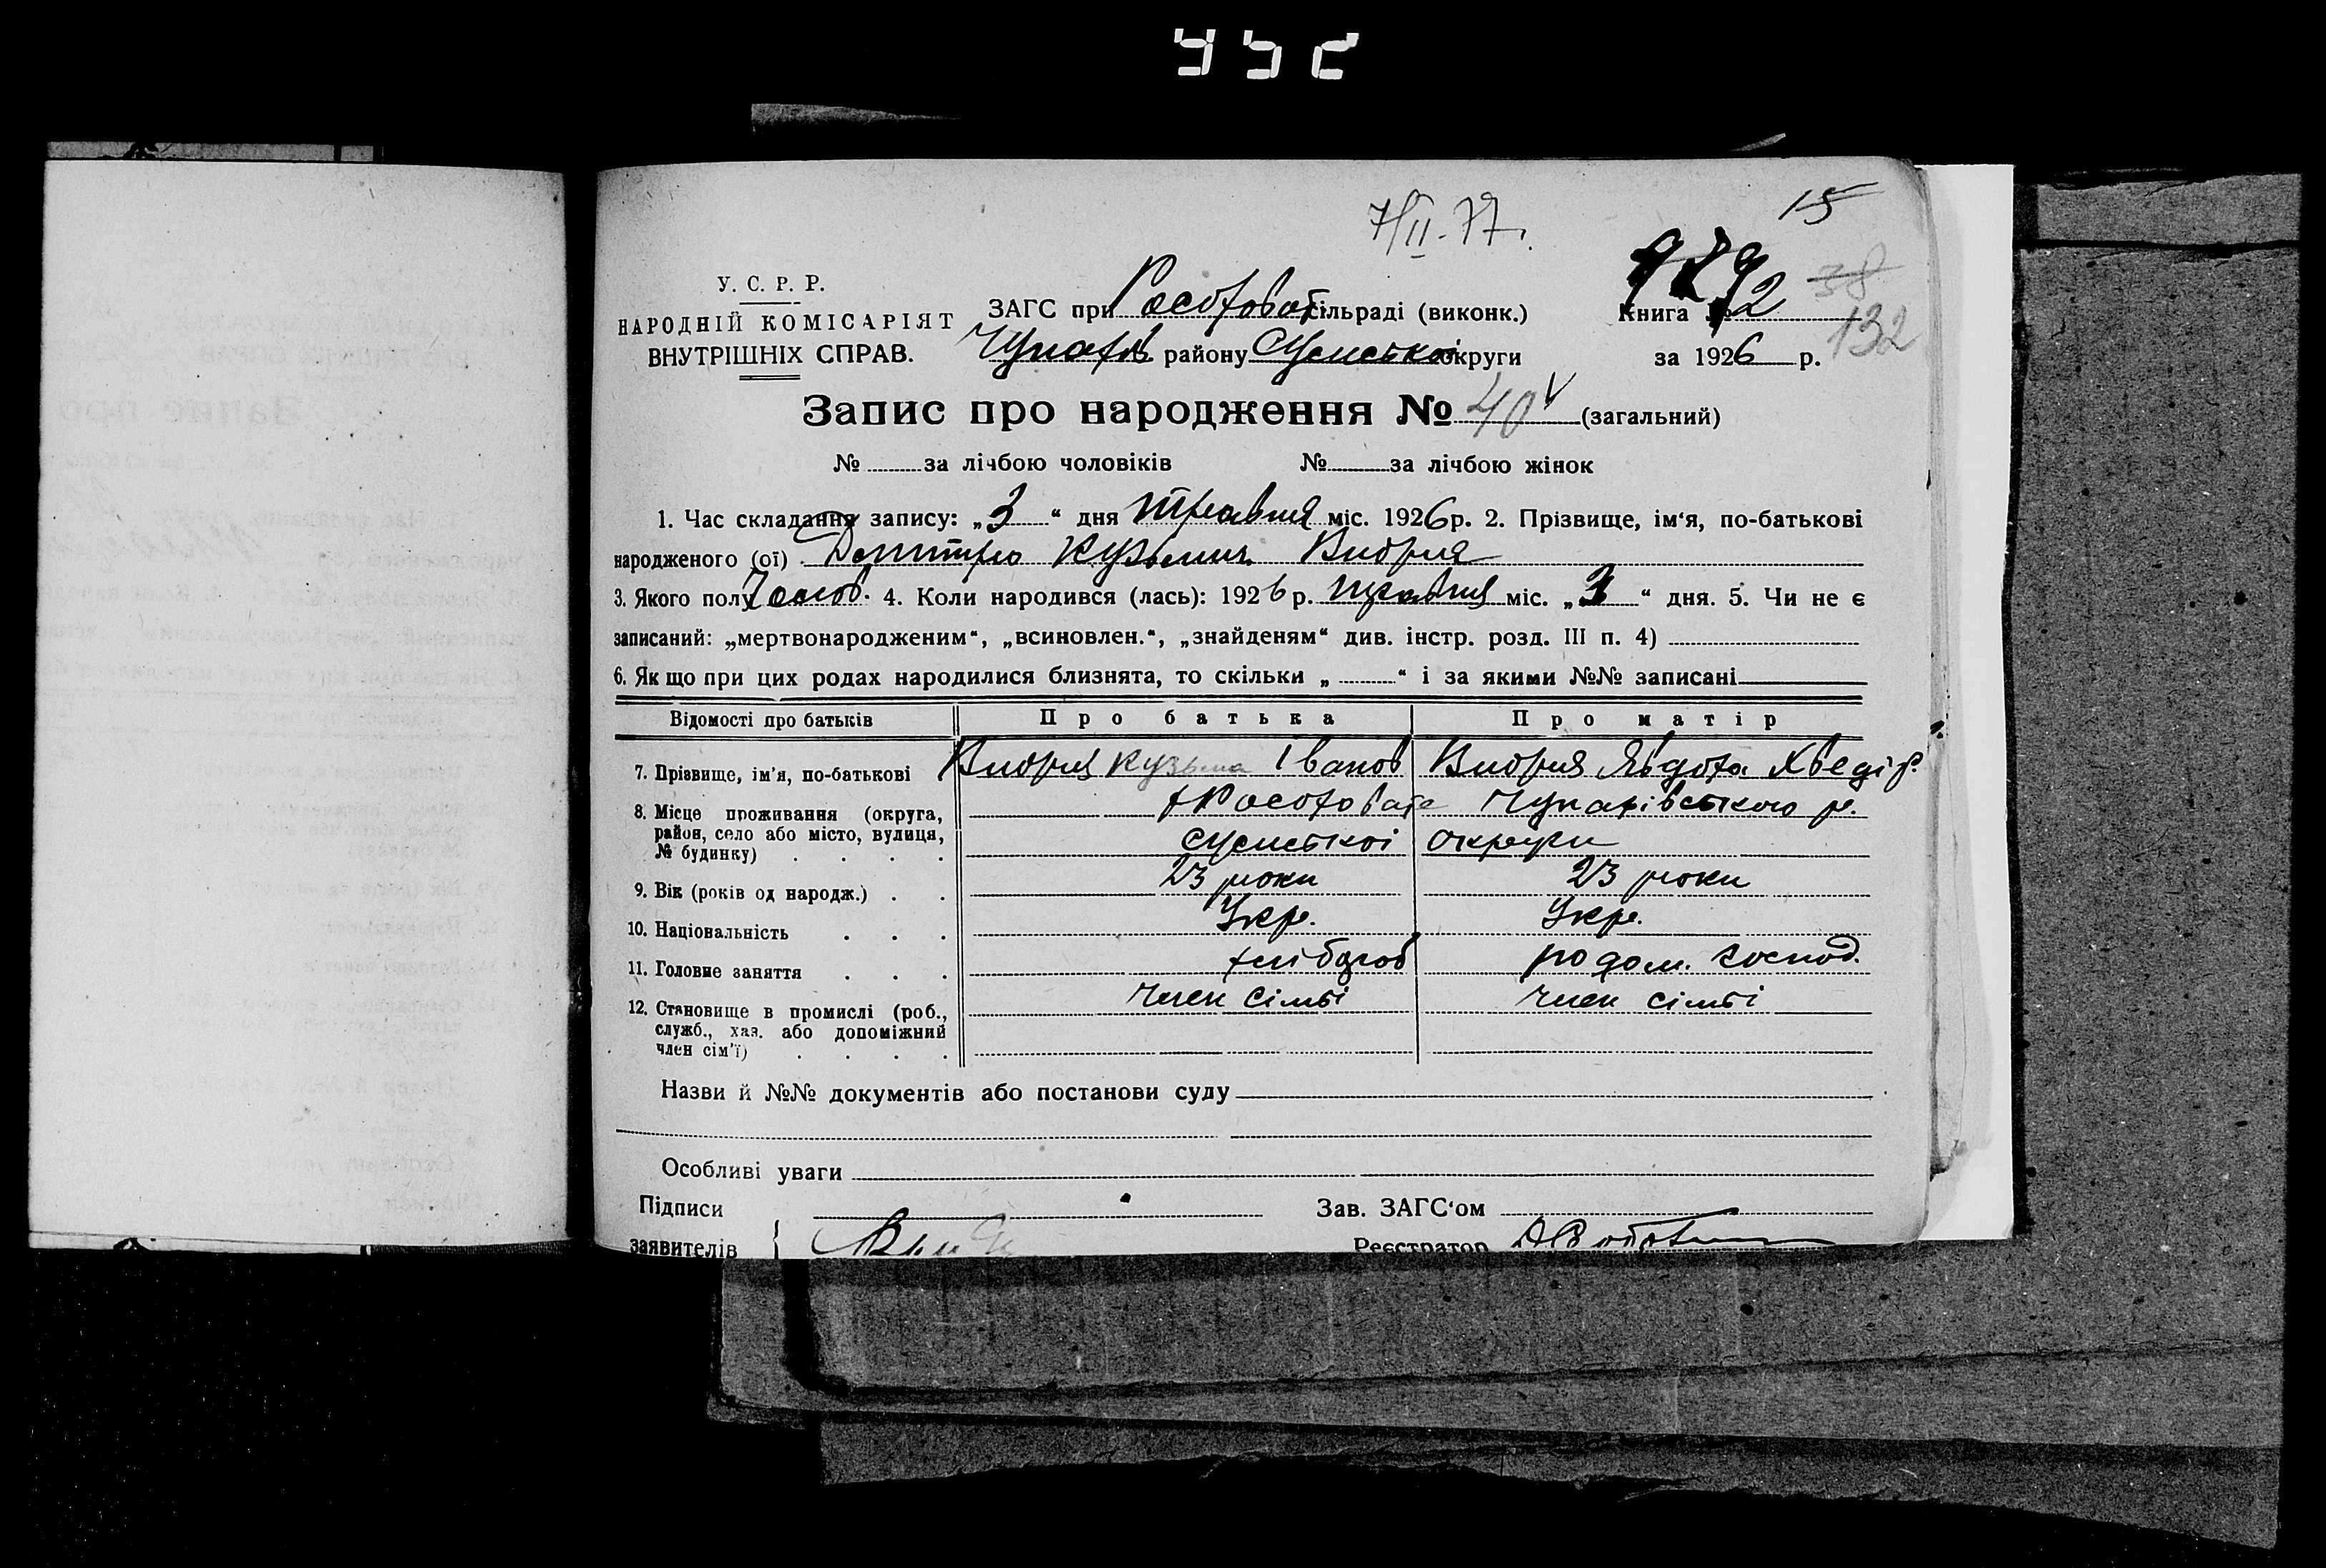 952
7/II-77г.
15
У. С. Р. Р.
НАРОДНІЙ КОМІСАРІЯТ
ВНУТРІШНІХ СПРАВ.
ЗАГС при сільраді (виконк.)
района Сумської округи
Книга № 2
38
132
за 1926 р.
Запис про народження № 40 (загальний)
№ за лічбою чоловіків № за лічбою жінок
1. Час складання запису: „3“ дня травня міс. 1926 р. 2. Прізвище, ім‘я, по-батькові
народженого (ої) Дмитро Кузьмич Вибрия
3. Якого полу чолов. 4. Коли народився (лась): 1926 р. травня міс. „3“ дня. 5. Чи не є
записаний: „мертвонародженим“, „всиновлен.“, „знайденям“ див. інстр. розд. III п. 4)
6. Якщо при цих родах народилися близнята, то скільки „ “ і за якими №№ записані
Відомості про батьків Про батька Про матір
7. Прізвище, ім‘я, по-батькові Вибрия Кузьма Іванов Вибрия Явдоха Хведір.
8. Місце проживання (округа,
район, село або місто, вулиця,
№ будинку)
Чупахівського р.
Сумської округи
9. Вік (років од народж.) 23 роки 23 роки
10. Національність Укр. Укр.
11. Головне заняття хлібороб по дом. господ.
12. Становище в промислі (роб.,
служб., хаз. або допоміжний
член сім‘ї)
член сімьі член сімьі
Назви й №№ документів або постанови суду
Особливі уваги
Підписи
заявителів
Зав. ЗАГС‘ом
Реєстратор